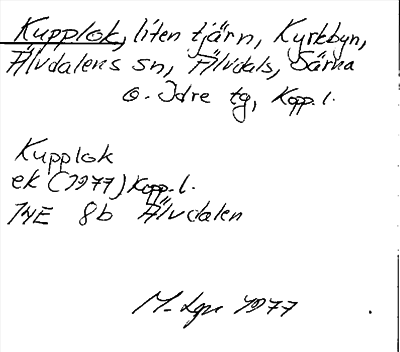 Kupplok, liten tjärn, Kyrkbyn,
Älvdalens sn, Älvdals, Särna
o. Idre tg, Kopp. l.
Kupplok
ek (1977) Kopp. l.
14E 8b Älvdalen
1977